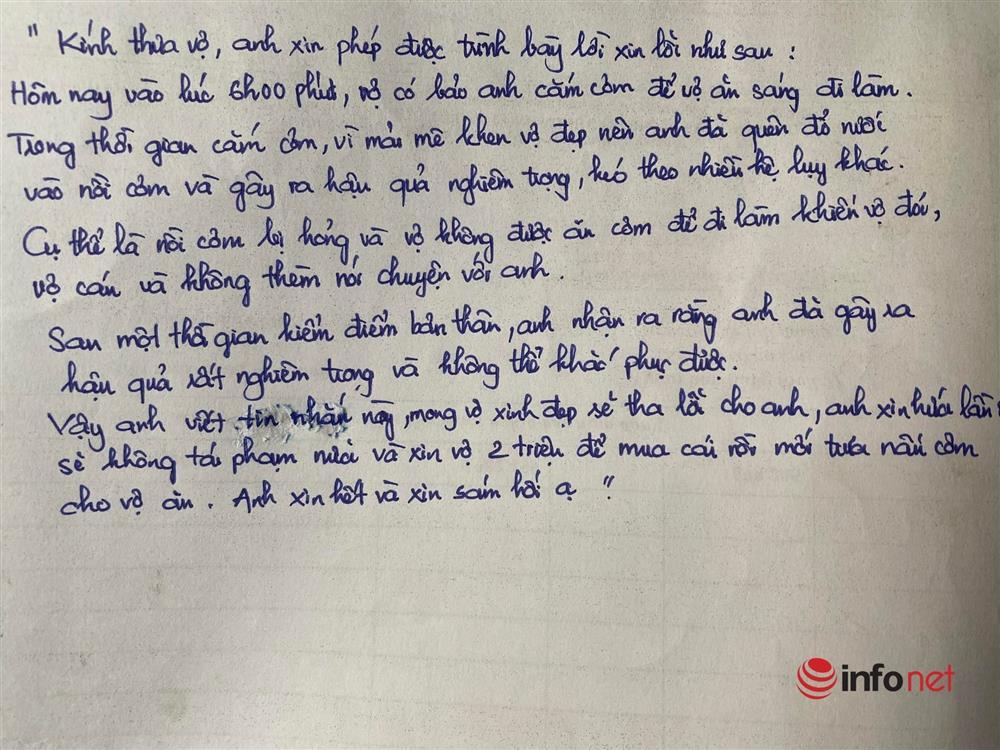 " Kính thưa vợ, anh xin phép được trình bày lời xin lỗi như sau :
Hôm nay vào lúc 6h00 phút, vợ có bảo anh cắm cơm để vợ ăn sáng đi làm.
Trong thời gian cắm cơm, vì mải mê khen vợ đẹp nên anh đã quên đổ nước
vào nồi cơm và gây ra hậu quả nghiêm trọng, kéo theo nhiều hệ lụy khác.
Cụ thể là nồi cơm bị hỏng và vợ không được ăn cơm để đi làm khiến vợ đói,
vợ cáu và không thèm nói chuyện với anh.
Sau một thời gian kiểm điểm bản thân, anh nhận ra rằng anh đã gây ra
hậu quả rất nghiêm trọng và không thể khắc phục được.
Vậy anh viết tin nhắn này, mong vợ xinh đẹp sẽ tha lỗi cho anh, anh xin hứa lần
sẽ không tái phạm nữa và xin vợ 2 triệu để mua cái nồi mới nấu cơm
cho vợ ăn. Anh xin hết và xin sám hối ạ "
infonet